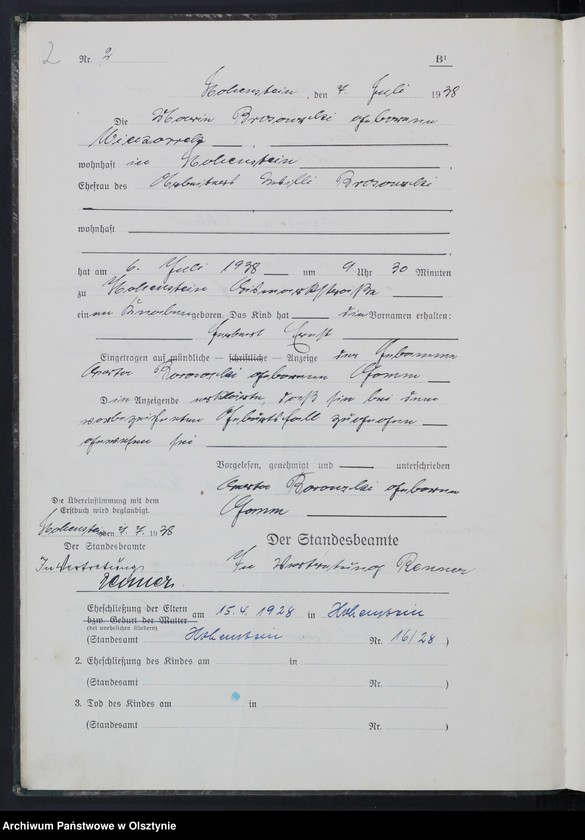 2
Nr. 2 B¹
Hohenstein, den 7. Juli 1938
Die Marie geborene
wohnhaft in Hohenstein
Ehefrau des Arbeiters Willi
wohnhaft
hat am 6. Juli 1938 um 9 Uhr 30 Minuten
zu Hohenstein Bismarckstraße
einen Knaben geboren. Das Kind hat die Vornamen erhalten:
Herbert Ernst
Eingetragen auf mündliche — schriftliche — Anzeige der Hebamme
geborenen
Die Anzeigende erklärte, daß sie bei dem
vorbezeichneten Geburtsfall zugegen
gewesen sei
Vorgelesen, genehmigt und unterschrieben
geborene
Die Übereinstimmung mit dem
Erstbuch wird beglaubigt.
Hohenstein, den 7. 7. 1938
Der Standesbeamte
In Vertretung
Renner
Der Standesbeamte
In Vertretung Renner
Eheschließung der Eltern am 15.4.1928 in Hohenstein
bzw. Geburt der Mutter
(bei unehelichen Kindern)
(Standesamt Hohenstein Nr. 16/28)
2. Eheschließung des Kindes am in
(Standesamt Nr. )
3. Tod des Kindes am in
(Standesamt Nr. )
Archiwum Państwowe w Olsztynie